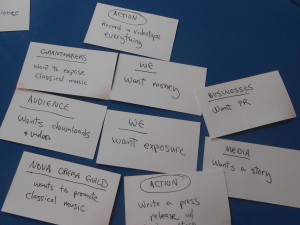 ACTION
Record & videotape
everything
GRANTMAKERS
Want to expose
classical music
WE
Want money
BUSINESSES
Want PR
AUDIENCE
Wants downloads
& video
WE
Want exposure
MEDIA
Wants a story
NOVA OPERA GUILD
Wants to promote
classical music
ACTION
Write a press
release w/